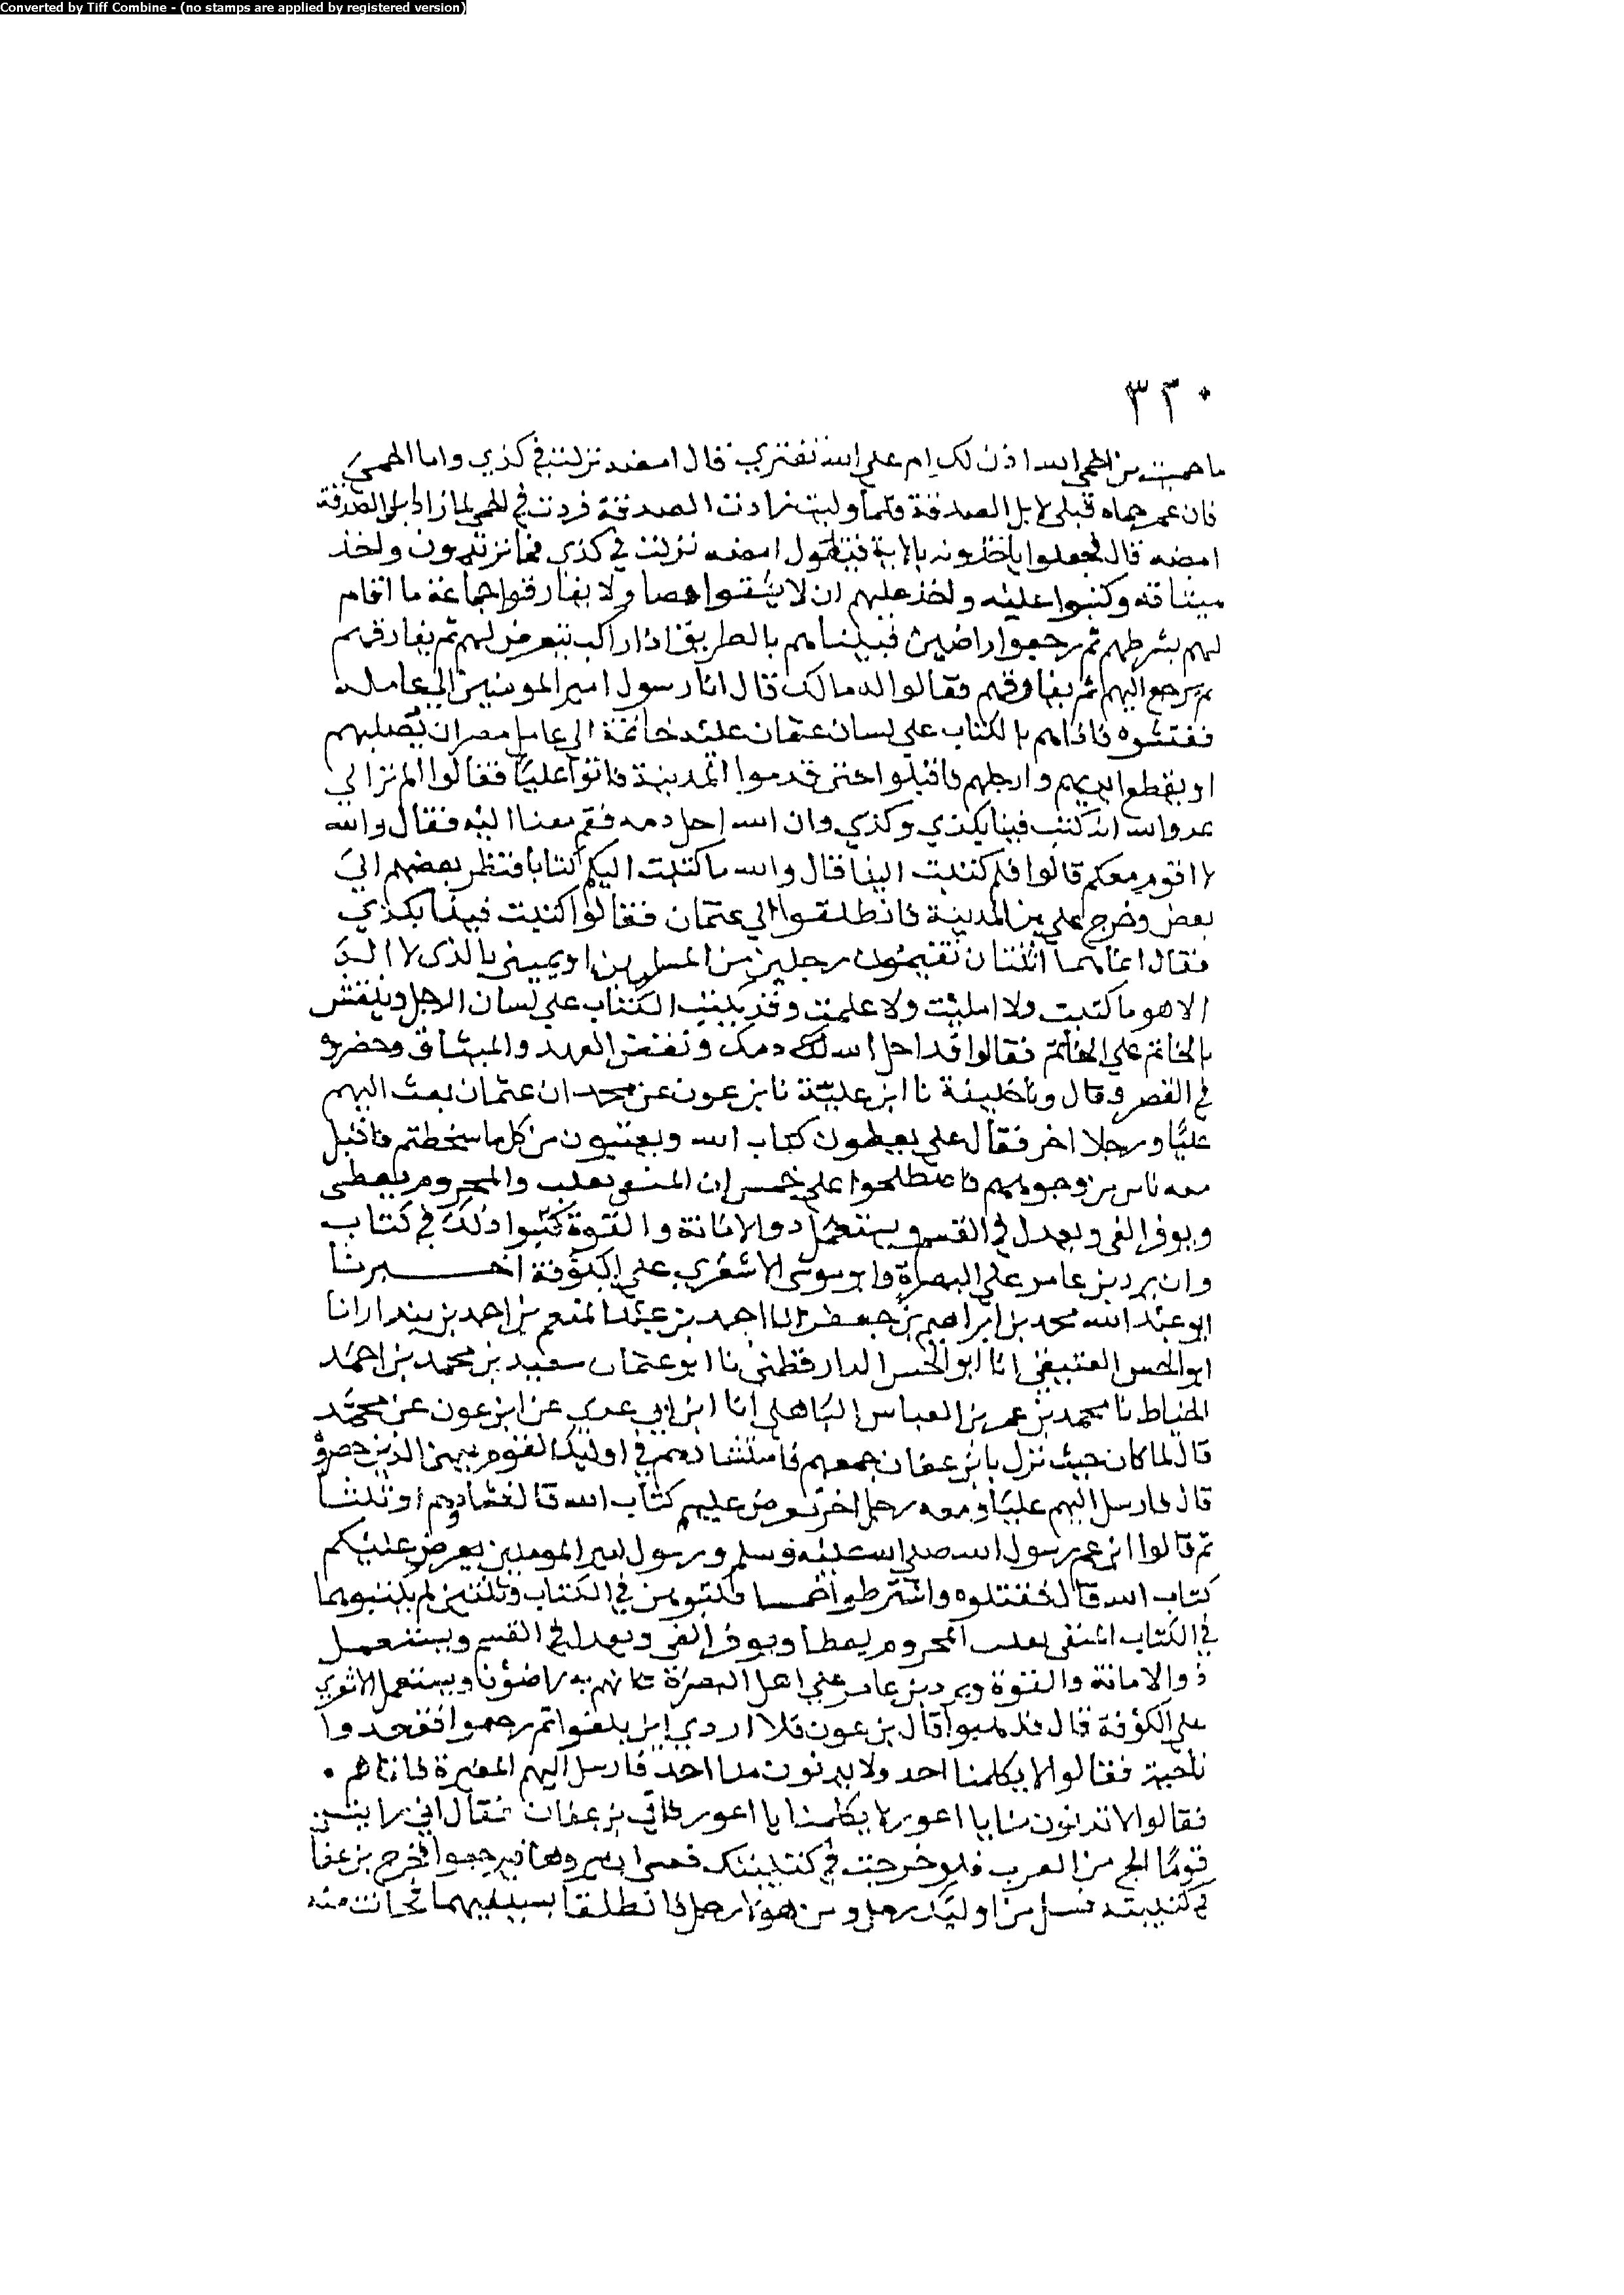 Converted by Tiff Combine - (no stamps are applied by registered version)
٣٢٠
ما حميت من الحمى الله اذن لك ام على الله تفتري قال امضه نزلت في كذي واما الحمى
فان عمر حماه قبلي لابل الصدقة فلما وليت زادت الصدقة فزدت في الحمى لما زاد ابل الصدقة
امضه قال فجعلوا ياخذونه بالاية فيقول امضه نزلت في كذي فما تريدون واخذ
ميثاقه وكتبوا عليه واخذ عليهم ان لا يشقوا عصا ولا يفارقوا جماعة ما اقام
لهم بشرطهم ثم رجعوا راضين فبينا هم بالطريق اذا راكب يتعرض لهم ثم يفارقهم
ثم يرجع اليهم ثم يفارقهم فقالوا له مالك قال انا رسول امير المومنين الى عامله
ففتشوه فاذا هم بالكتاب على لسان عثمان عليه خاتمه الى عامل مصر ان يصلبهم
او يقطع ايديهم وارجلهم فاقبلوا حتى قدموا المدينة فاتوا عليا فقالوا الم تر الى
عدو الله انه كتب فينا بكذي وكذي وان الله احل دمه فقم معنا اليه فقال والله
لا اقوم معكم قالوا فلم كتبت الينا قال والله ما كتبت اليكم كتابا فنظر بعضهم الى
بعض وخرج علي من المدينة فانطلقوا الى عثمان فقالوا كتبت فينا بكذي
فقال انما هما اثنتان تقيمون رجلين من المسلمين او يميني بالذى لا اله
الا هو ما كتبت ولا امليت ولا علمت وقد يكتب الكتاب على لسان الرجل وينقش
الخاتم على الخاتم فقالوا قد احل الله لك دمك ونقض العهد والميثاق وحضروه
في القصر وقال ونا خليفة نا ابن علية نا بن عون عن محمد ان عثمان بعث اليهم
عليا ورجلا اخر فقال علي يعطون كتاب الله ويعتبون من كل ما سخطتم فاقبل
معه ناس من وجوههم فاصطلحوا على خمس ان المنفى يقلب والمحروم يعطى
ويوفر الفي ويعدل في القسم ويستعمل ذو الامانة والقوة كتبوا ذلك في كتاب
وان يرد بن عامر على البصرة وابو موسى الاشعري على الكوفة اخبرنا
ابو عبد الله محمد بن ابراهيم بن جعفر انا احمد بن عبد المنعم بن احمد بن بندار انا
ابو الحسن العتيقي انا ابو الحسن الدارقطني نا ابو عثمان سعيد بن محمد بن احمد
الحناط نا محمد بن عمر بن العباس الباهلي انا ابن ابي عدي عن ابن عون عن محمد
قال لما كان حيث نزل بابن عفان جمعهم فاستشارهم في اوليك القوم يعني الذين حصروه
قال فارسل اليهم عليا ومعه رجل اخر يعرض عليهم كتاب الله قال فشادهم او ثلثا
ثم قالوا ابن عم رسول الله صلى الله عليه وسلم ورسول امير المومنين يعرض عليكم
كتاب الله قال فقبلوه واشترطوا خمسا فكتبوهن في الكتاب وثلثين لم يكتبوهما
في الكتاب المنفى يقلب المحروم يعطا ويوفر الفى ويعدل في القسم ويستعمل
ذو الامانة والقوة ويرد بن عامر على اهل البصرة فانهم به راضون ويستعمل الاشعري
على الكوفة قال فذهبوا قال بن عون فلا ادري اين بلغوا ثم رجعوا فقعدوا
ناحية فقالوا لا يكلمنا احد ولا يدنون منا احد فارسل اليهم المغيرة فاتاهم
فقالوا لا تدنون منا يا اعور لا يكلمنا يا اعور فاتى بن عفان فقال اني رايت
قوما الج من العرب فلو خرجت في كتيبتك فعسى ان يروها فيرجعوا فخرج بن عفان
في كتيبته فسل من اوليك رجل ومن هولا رجل فانطلقا بسيفيهما فحانت منه